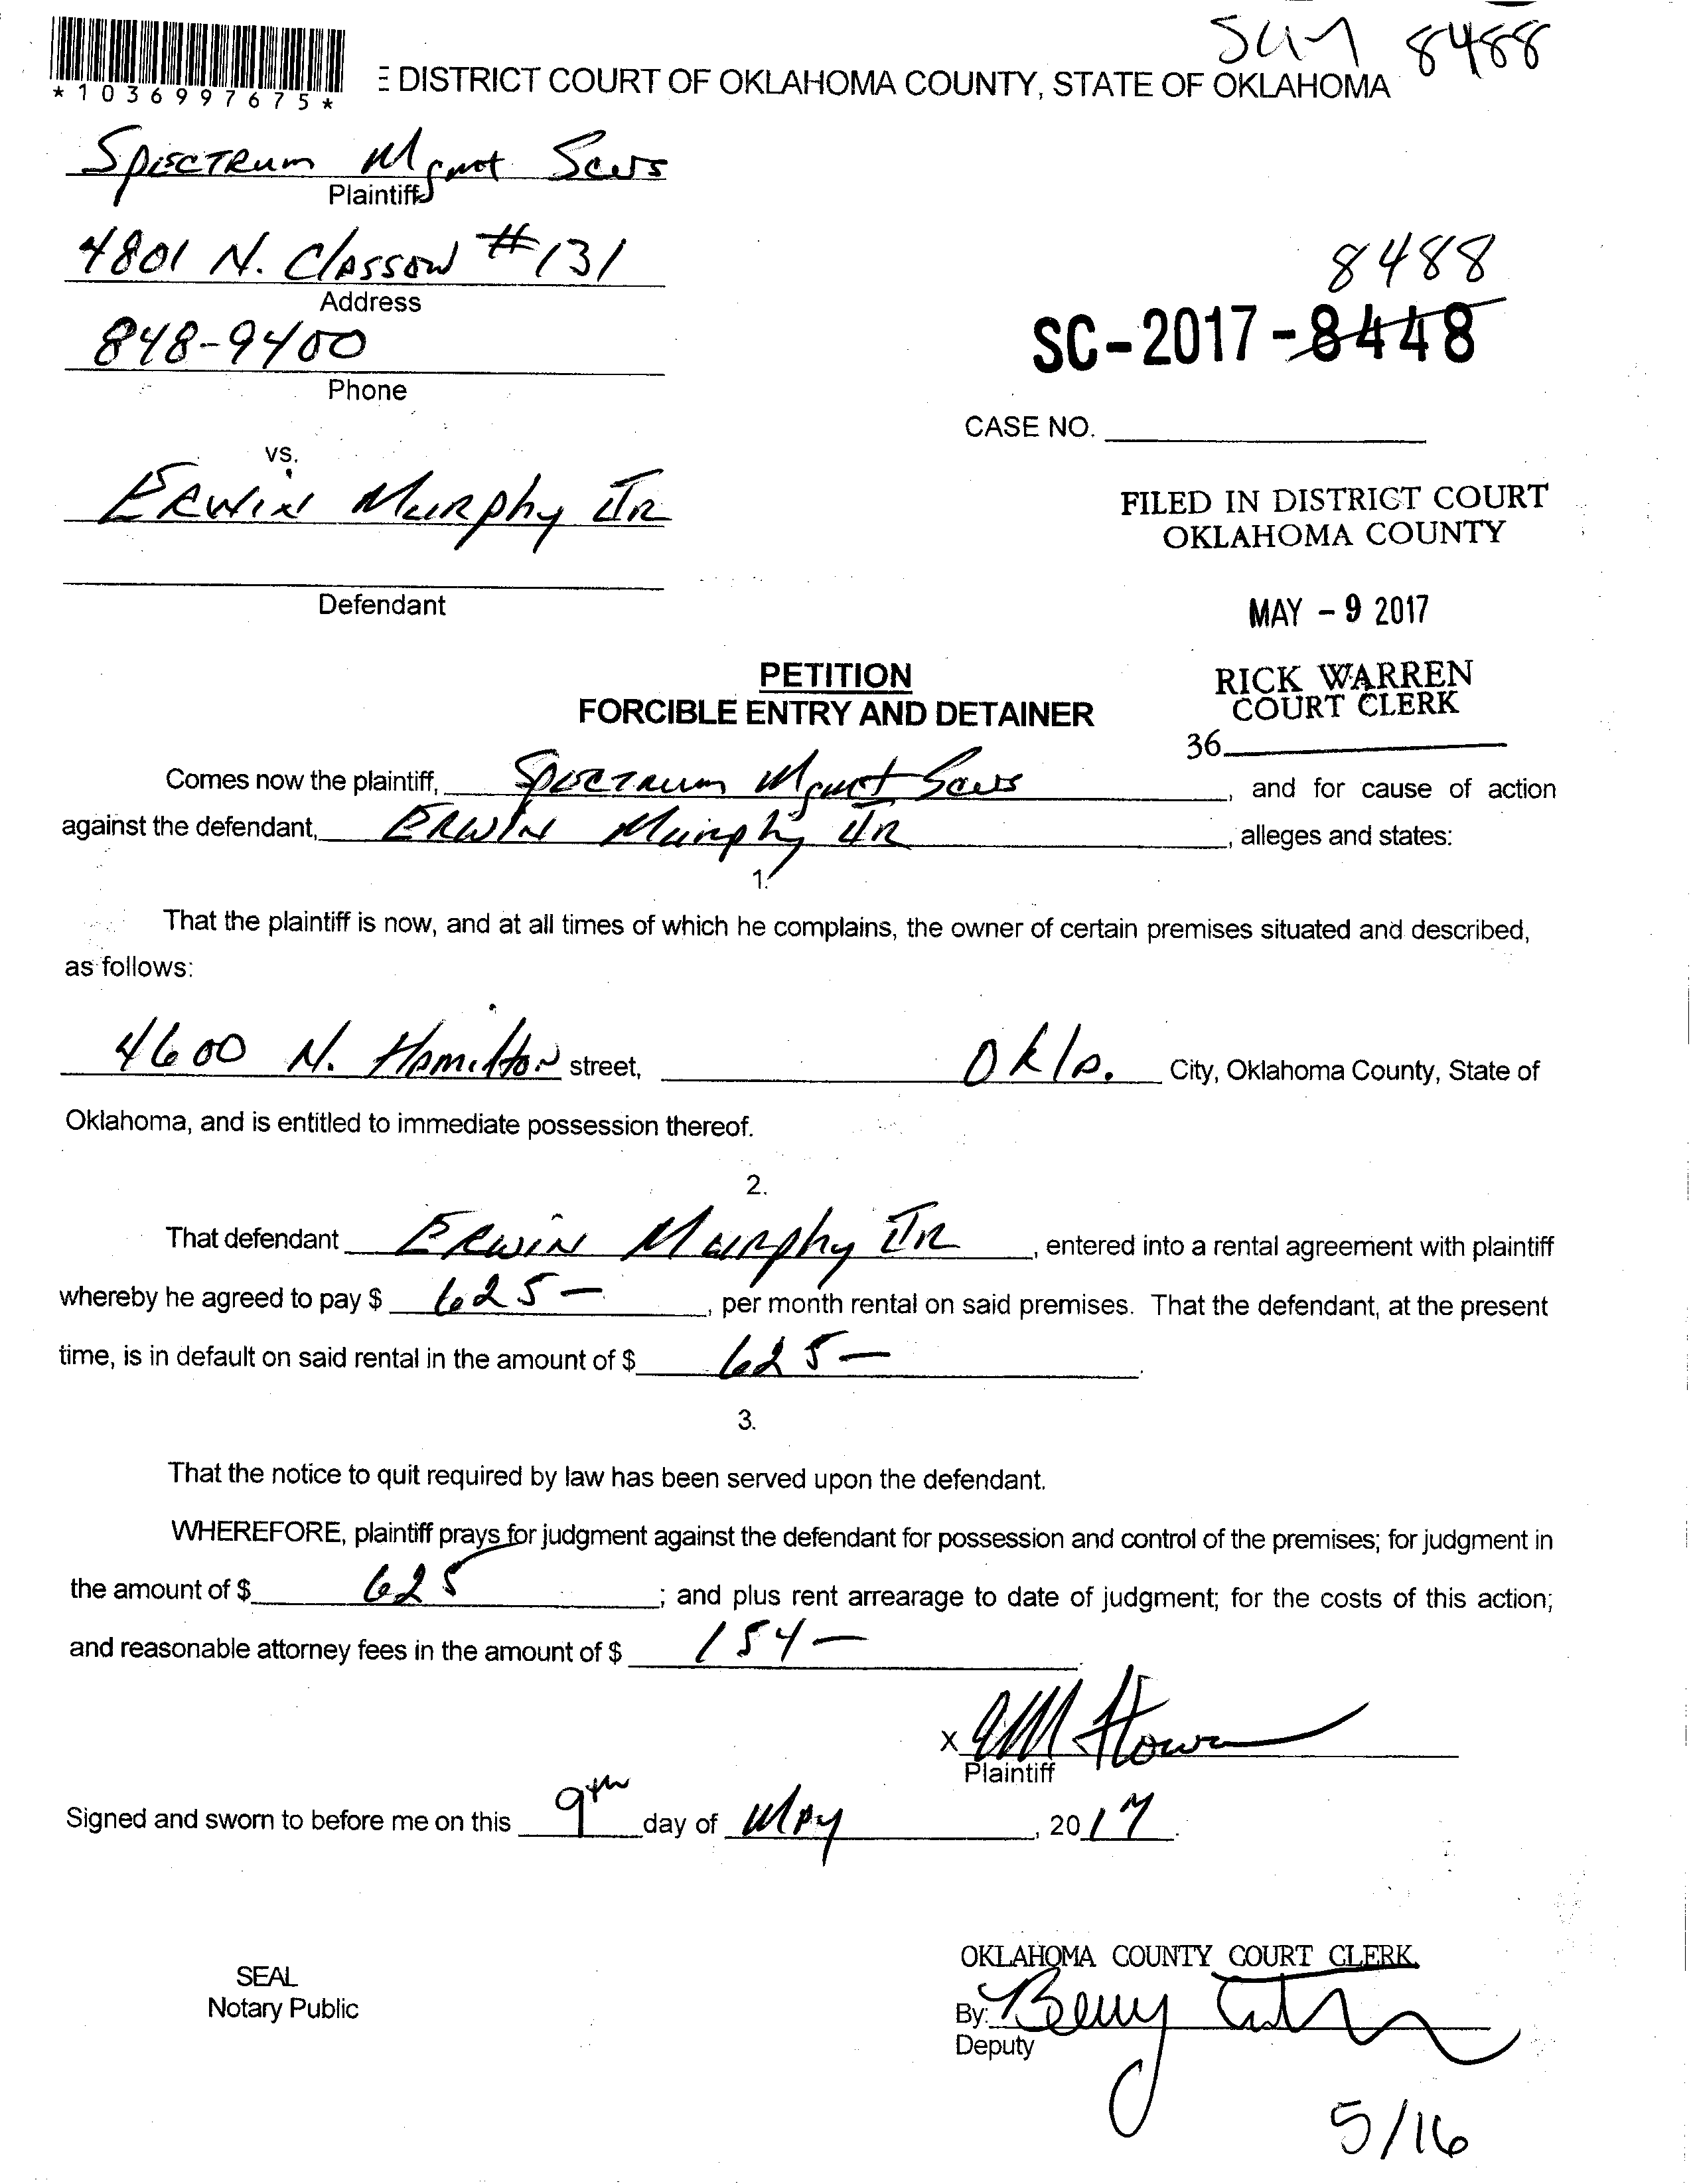 8488
*1036997675*
E DISTRICT COURT OF OKLAHOMA COUNTY, STATE OF OKLAHOMA
Spectrum Mgmt Scvs
Plaintiff
4801 N. Classen #131
Address
848-9400
Phone
8488
SC-2017-8448
CASE NO.
vs.
Erwin Murphy Jr
Defendant
FILED IN DISTRICT COURT
OKLAHOMA COUNTY
MAY - 9 2017
RICK WARREN
COURT CLERK
36
PETITION
FORCIBLE ENTRY AND DETAINER
Comes now the plaintiff, Spectrum Mgmt Scvs, and for cause of action
against the defendant, Erwin Murphy Jr, alleges and states:
1.
That the plaintiff is now, and at all times of which he complains, the owner of certain premises situated and described,
as follows:
4600 N. Hamilton street, Okla. City, Oklahoma County, State of
Oklahoma, and is entitled to immediate possession thereof.
2.
That defendant Erwin Murphy Jr, entered into a rental agreement with plaintiff
whereby he agreed to pay $ 625-, per month rental on said premises. That the defendant, at the present
time, is in default on said rental in the amount of $ 625-.
3.
That the notice to quit required by law has been served upon the defendant.
WHEREFORE, plaintiff prays for judgment against the defendant for possession and control of the premises; for judgment in
the amount of $ 625; and plus rent arrearage to date of judgment; for the costs of this action;
and reasonable attorney fees in the amount of $ 154-.
X
Plaintiff
Signed and sworn to before me on this 9th day of May, 2017.
SEAL
Notary Public
OKLAHOMA COUNTY COURT CLERK
By:
Deputy
5/16